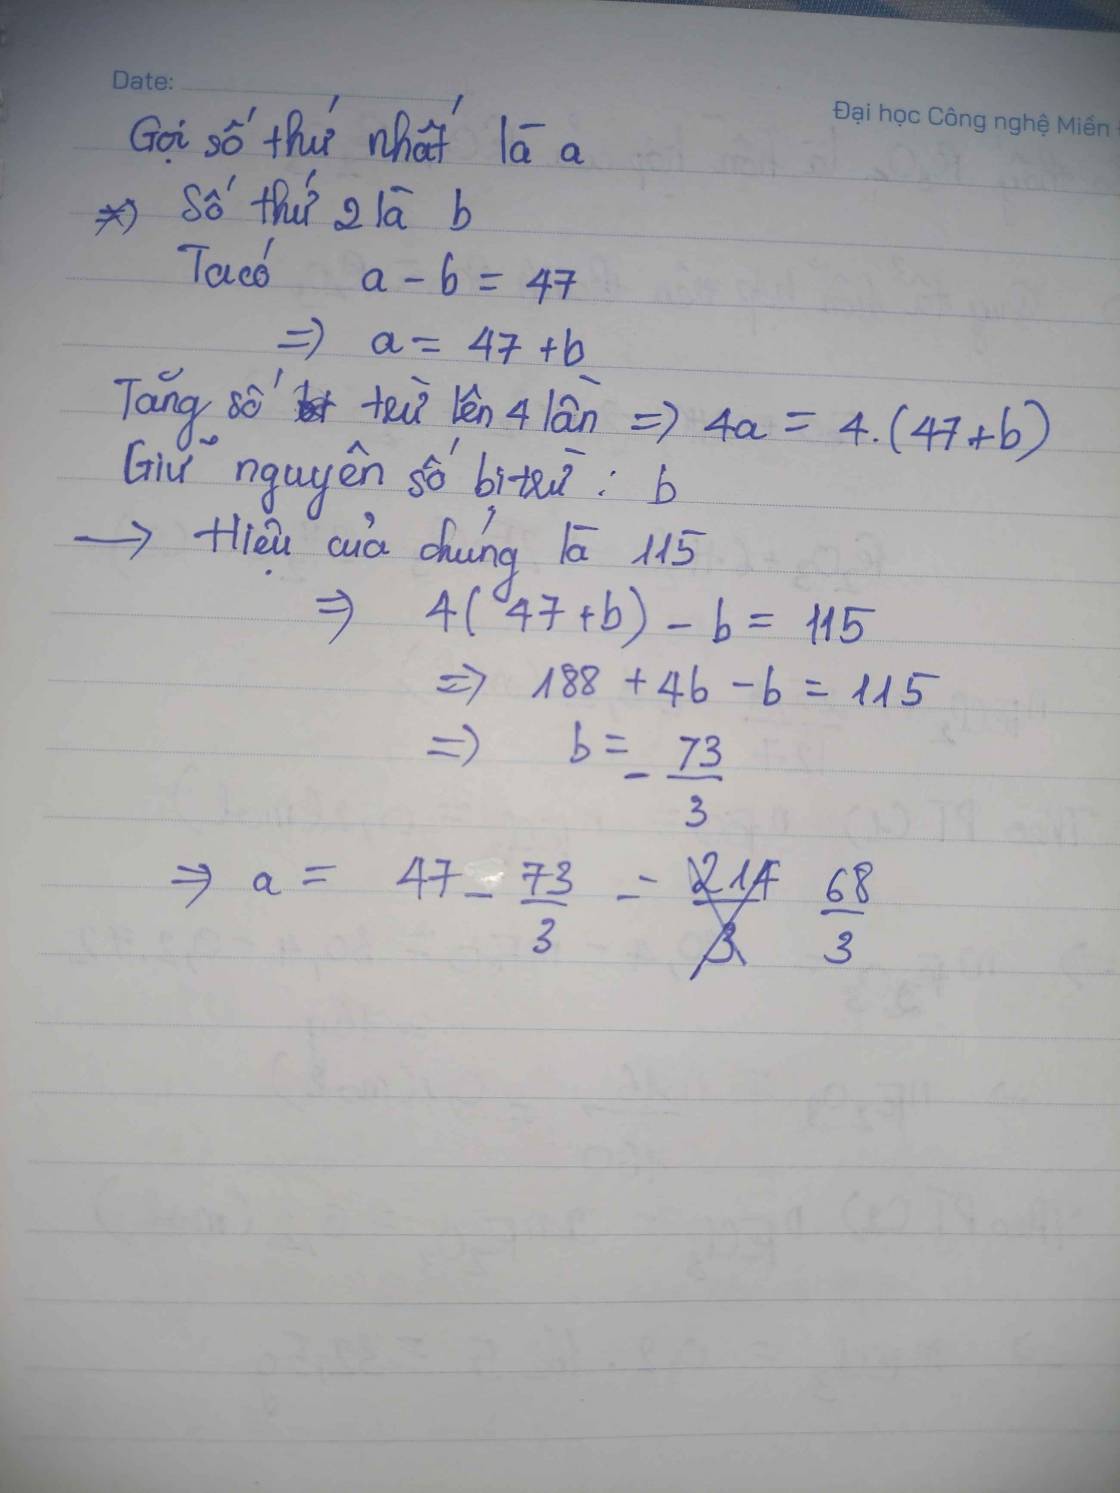 Date:
Đại học Công nghệ Miền
Gọi số thứ nhất là a
=> Số thứ 2 là b
Ta có a - b = 47
=> a = 47 + b
Tăng số trừ lên 4 lần => 4a = 4.(47+b)
Giữ nguyên số bị trừ : b
→ Hiệu của chúng là 115
=> 4( 47 + b) - b = 115
=> 188 + 4b - b = 115
=> b = - 73/3
=> a = 47 - 73/3 = 68/3